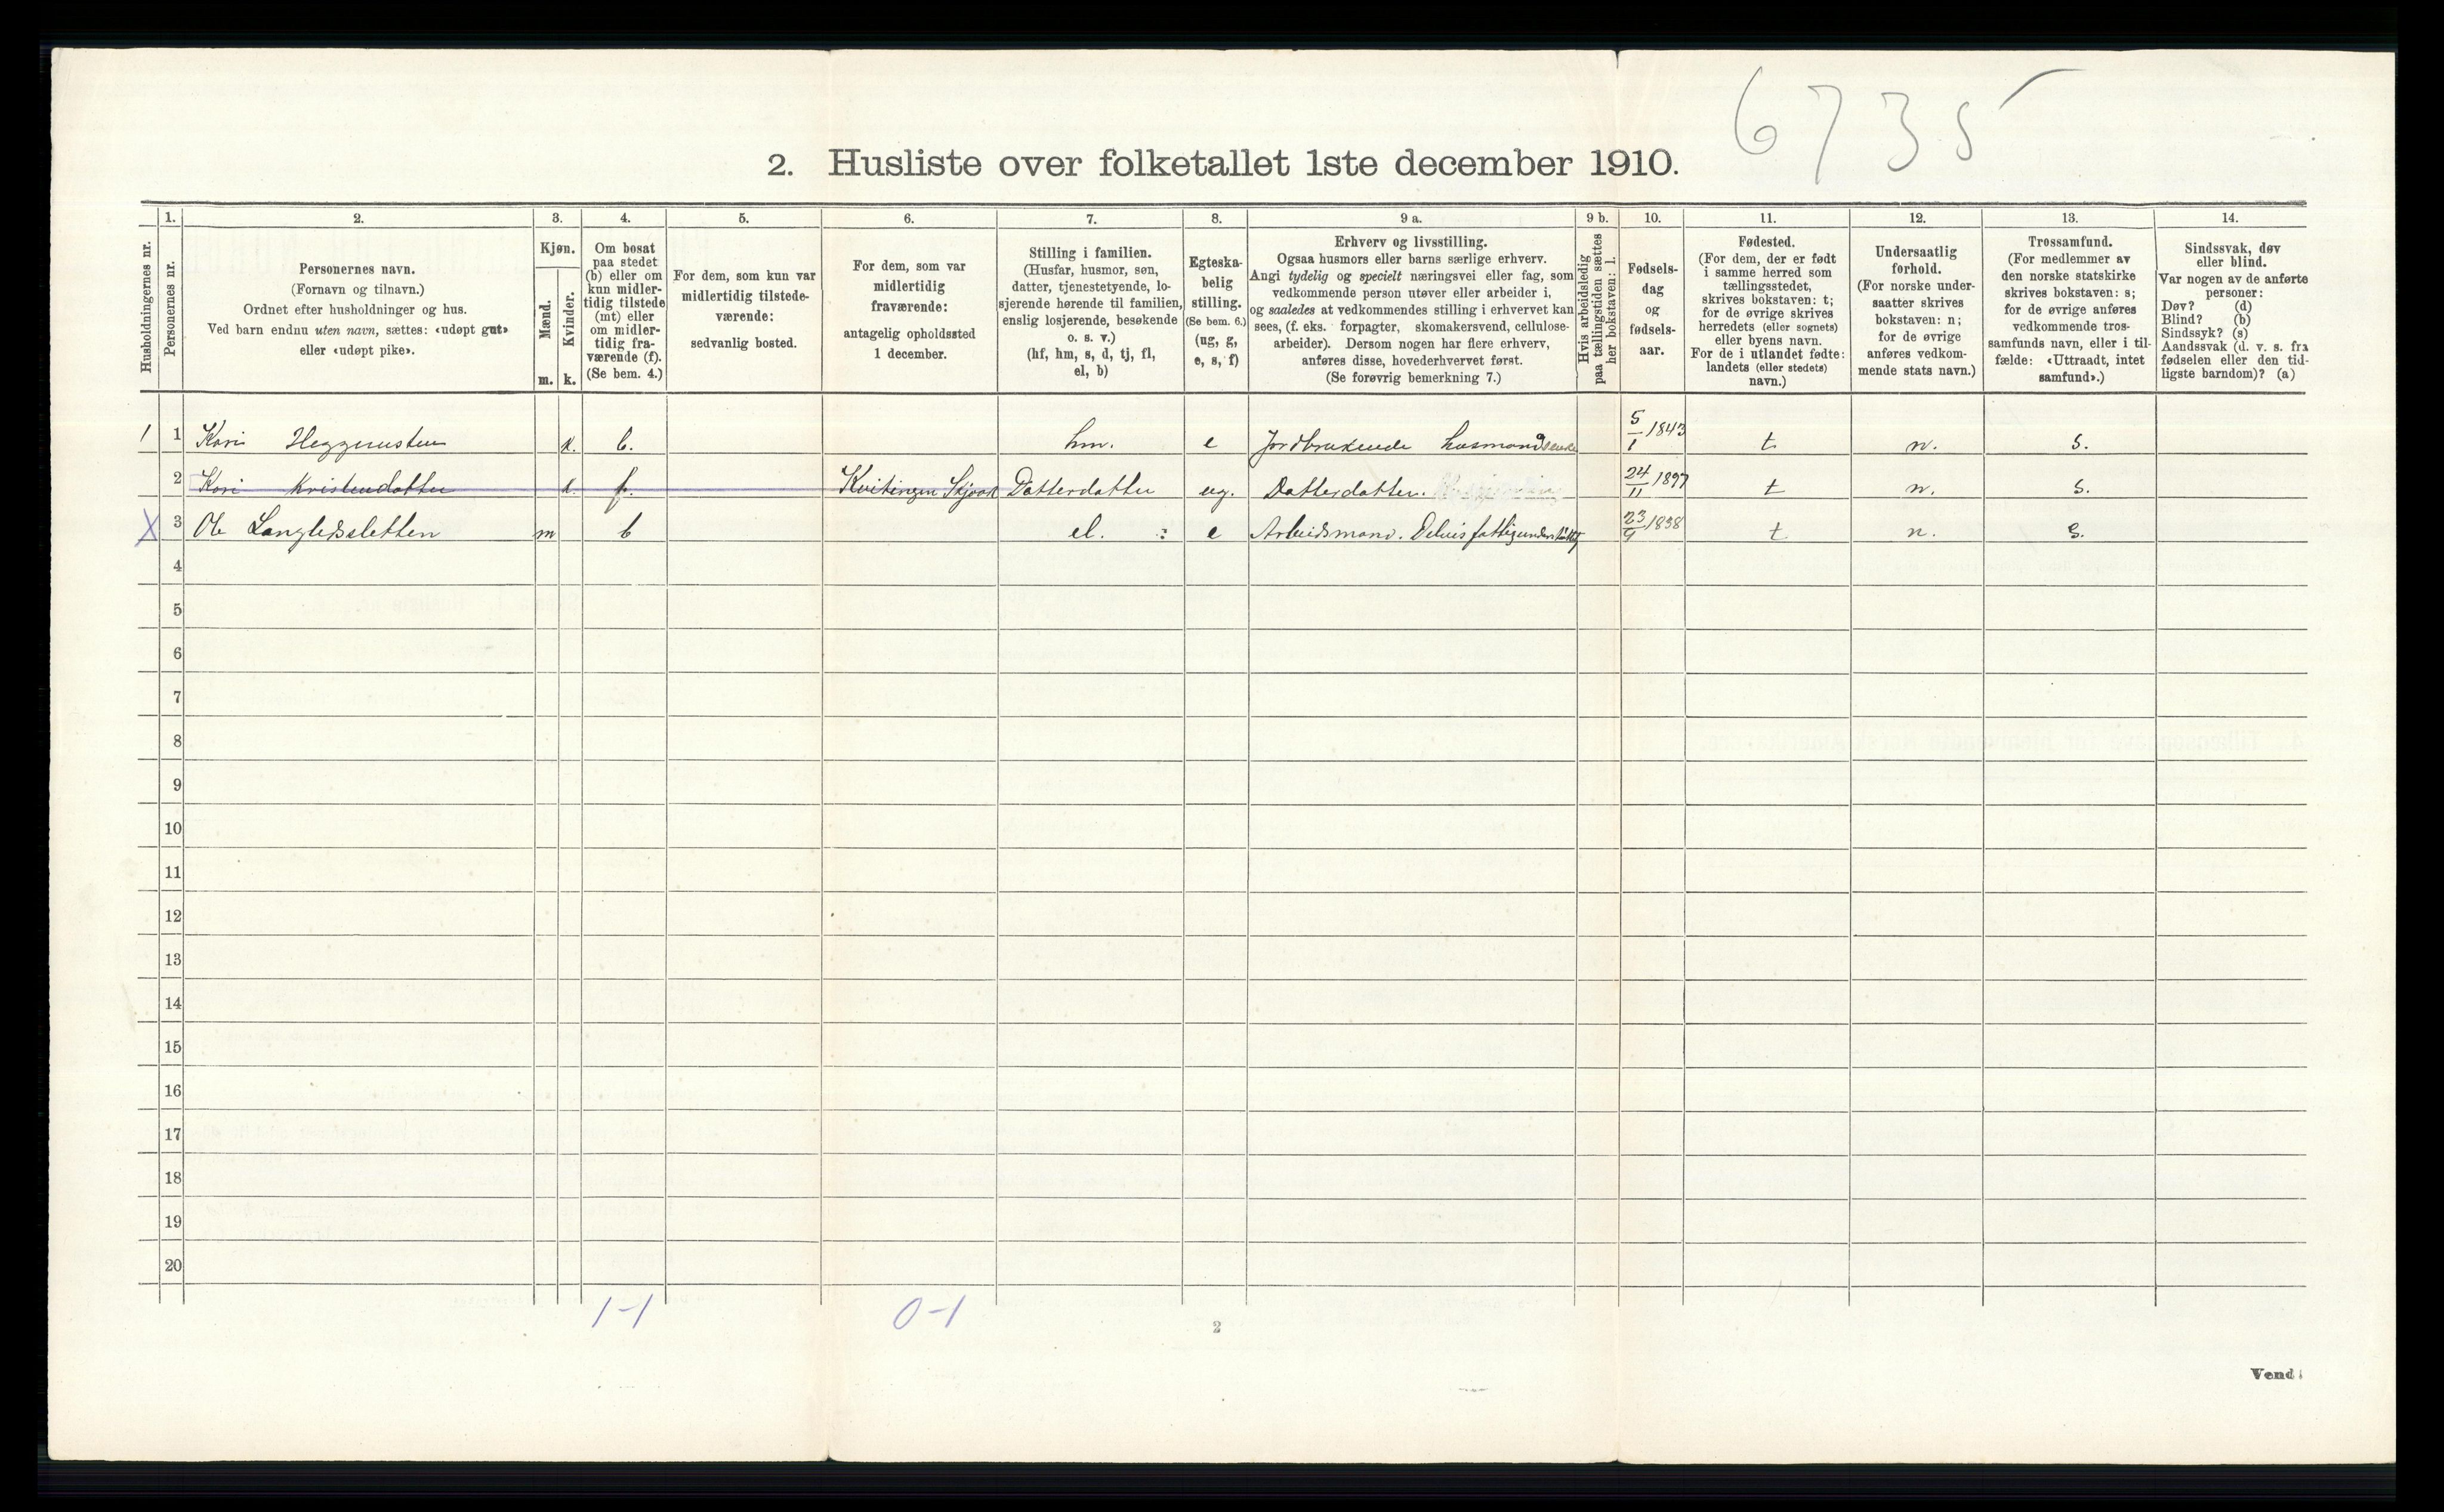 6735
2. Husliste over folketallet 1ste december 1910.
Husholdningernes nr.
1.
Personernes nr.
2.
Personernes navn.
(Fornavn og tilnavn.)
Ordnet efter husholdninger og hus.
Ved barn endnu uten navn, sættes: «udøpt gut»
eller «udøpt pike».
3.
Kjøn.
Mænd.
Kvinder.
m. k.
4.
Om bosat
paa stedet
(b) eller om
kun midler-
tidig tilstede
(mt) eller
om midler-
tidig fra-
værende (f).
(Se bem. 4.)
5.
For dem, som kun var
midlertidig tilstede-
værende:
sedvanlig bosted.
6.
For dem, som var
midlertidig
fraværende:
antagelig opholdssted
1 december.
7.
Stilling i familien.
(Husfar, husmor, søn,
datter, tjenestetyende, lo-
sjerende hørende til familien,
enslig losjerende, besøkende
o. s. v.)
(hf, hm, s, d, tj, fl,
el, b)
8.
Egteska-
belig
stilling.
(Se bem. 6.)
(ug, g,
e, s, f)
9 a.
Erhverv og livsstilling.
Ogsaa husmors eller barns særlige erhverv.
Angi tydelig og specielt næringsvei eller fag, som
vedkommende person utøver eller arbeider i,
og saaledes at vedkommendes stilling i erhvervet kan
sees, (f. eks. forpagter, skomakersvend, cellulose-
arbeider). Dersom nogen har flere erhverv,
anføres disse, hovederhvervet først.
(Se forøvrig bemerkning 7.)
9 b.
Hvis arbeidsledig
paa tællingstiden sættes
her bokstaven: l.
10.
Fødsels-
dag
og
fødsels-
aar.
11.
Fødested.
(For dem, der er født
i samme herred som
tællingsstedet,
skrives bokstaven: t;
for de øvrige skrives
herredets (eller sognets)
eller byens navn.
For de i utlandet fødte:
landets (eller stedets)
navn.)
12.
Undersaatlig
forhold.
(For norske under-
saatter skrives
bokstaven: n;
for de øvrige
anføres vedkom-
mende stats navn.)
13.
Trossamfund.
(For medlemmer av
den norske statskirke
skrives bokstaven: s;
for de øvrige anføres
vedkommende tros-
samfunds navn, eller i til-
fælde: «Uttraadt, intet
samfund».)
14.
Sindssvak, døv
eller blind.
Var nogen av de anførte
personer:
Døv? (d)
Blind? (b)
Sindssyk? (s)
Aandssvak (d. v. s. fra
fødselen eller den tid-
ligste barndom)? (a)
1 1 Kari Heggerusten k. b. hm. e Jordbrukende husmandsenke 5/1 1843 t n. s.
2 Kari Kristendatter k. f. Kvitingen Skjaak Datterdatter ug. Datterdatter. 24/11 1897 t n. s.
X 3 Ole Langledssletten m b el. : e Arbeidsmand. Delvis fattigunderstøttet 23/9 1838 t n. s.
4
5
6
7
8
9
10
11
12
13
14
15
16
17
18
19
20
1-1 0-1
2
Vend!